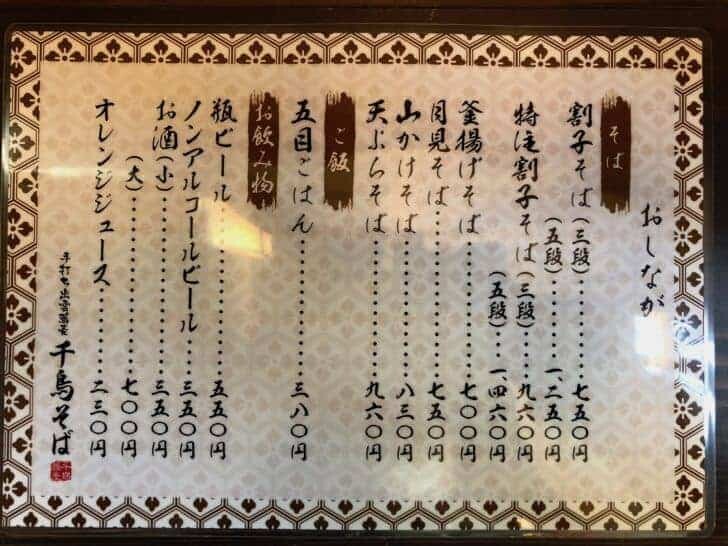 おしながき
そば
割子そば(三段)…………七五〇円
(五段)…………一、二五〇円
特注割子そば(三段)……九六〇円
(五段)…一四六〇円
釜揚げそば…………七〇〇円
月見そば…………七五〇円
山かけそば…………八三〇円
天ぷらそば…………九六〇円
ご飯
五目ごはん…………三八〇円
お飲み物
瓶ビール…………五五〇円
ノンアルコールビール……三五〇円
お酒(小)…………三五〇円
(大)…………七〇〇円
オレンジジュース…………二三〇円
手打ち出雲蕎麦 千鳥そば